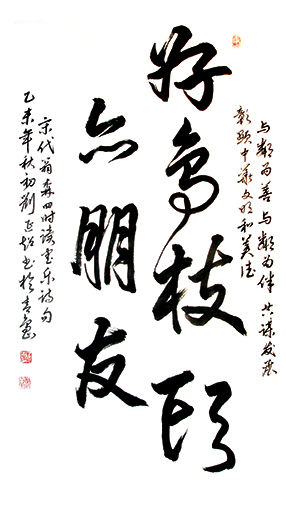 与邻为善与邻为伴共谋发展
彰显中华文明和美德
好鸟枝头
亦朋友
宋代翁森四时读书乐诗句
乙未年秋初刘延超书于青岛